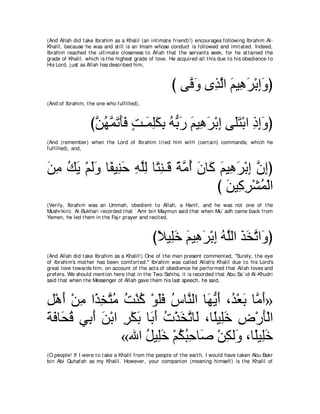 (And Allah did take Ibrahim as a Khalil (an intimate friend)!) encourages following Ibrahim Al-
Khalil, because he was and still is an Imam whose conduct is followed and imitated. Indeed,
Ibrahim reached the ultimate closeness to Allah that the servants seek, for he attained the
grade of Khalil, which is the highest grade of love. He acquired all this due to his obedience to
His Lord, just as Allah has described him,
(وَإِبْرَاهِيمَ الَّذِى وَفَّى )
(And of Ibrahim, the one who fulfilled),
(وَإِذِ ابْتَلَى إِبْرَاهِيمَ رَبُّهُ بِكَلِمَـتٍ فَأَتَمَّهُنَّ)
(And (remember) when the Lord of Ibrahim tried him with (certain) commands, which he
fulfilled), and,
(إِنَّ إِبْرَاهِيمَ كَانَ أُمَّةً قَـنِتًا لِلَّهِ حَنِيفًا وَلَمْ يَكُ مِنَ
الْمُشْرِكِينَ )
(Verily, Ibrahim was an Ummah, obedient to Allah, a Hanif, and he was not one of the
Mushrikin). Al-Bukhari recorded that `Amr bin Maymun said that when Mu`adh came back from
Yemen, he led them in the Fajr prayer and recited,
(وَاتَّخَذَ اللَّهُ إِبْرَهِيمَ خَلِيلاً)
(And Allah did take Ibrahim as a Khalil!) One of the men present commented, "Surely, the eye
of Ibrahim's mother has been comforted.'' Ibrahim was called Allah's Khalil due to his Lord's
great love towards him, on account of the acts of obedience he performed that Allah loves and
prefers. We should mention here that in the Two Sahihs, it is recorded that Abu Sa`id Al-Khudri
said that when the Messenger of Allah gave them his last speech, he said,
«أَمَّا بَعْدُ، أَيُّهَا النَّاسُ فَلَوْ كُنْتُ مُتَّخِذًا مِنْ أَهْلِ
الْأَرْضِ خَلِيلًا، لَاتَّخَذْتُ أَبَا بَكْرِ ابْنَ أَبِي قُحَافَةَ
خَلِيلًا، وَلكِنْ صَاحِبُكُمْ خَلِيلُ الله»
(O people! If I were to take a Khalil from the people of the earth, I would have taken Abu Bakr
bin Abi Quhafah as my Khalil. However, your companion (meaning himself) is the Khalil of